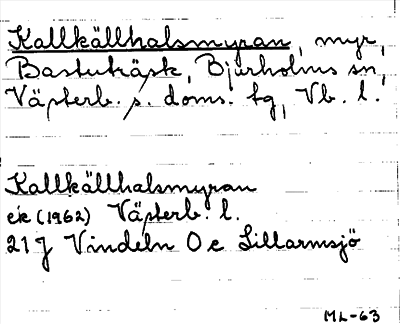 Kallkällhalsmyran, myr,
Bastuträsk, Bjurholms sn,
Västerb. s. doms. tg, Vb. l.
Kallkällhalsmyran
ek (1962) Västerb. l.
21 J Vindeln 0 c Lillarmsjö
ML-63